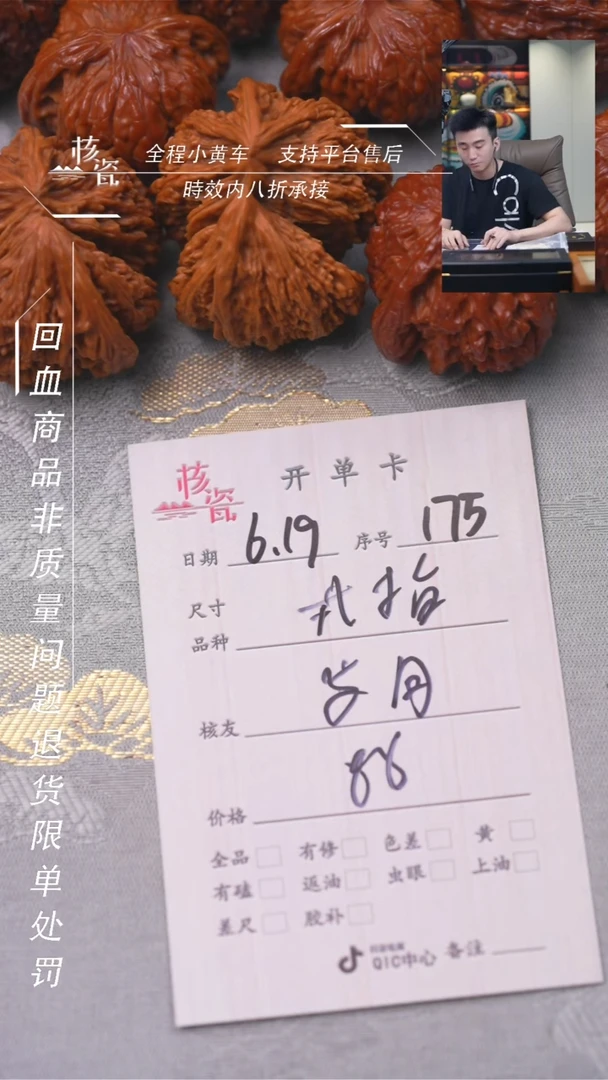 核瓷
全程小黄车 支持平台售后
時效内八折承接
回血商品非质量问题退货限单处罚
核瓷 开单卡
日期 6.19 序号 175
尺寸
品种
核友 岁月
价格 88
全品 有修 色差 黄
有磕 返油 虫眼 上油
差尺 胶补
抖音电商
QIC中心 备注